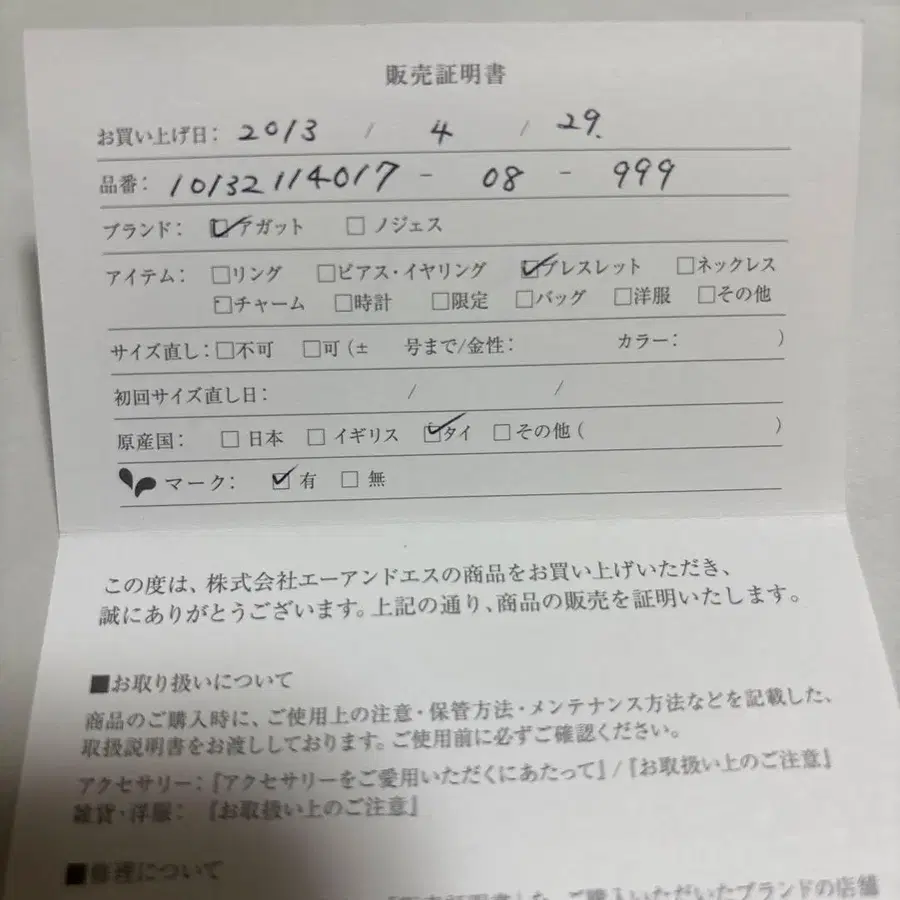 販売証明書
お買い上げ日： 2013 / 4 / 29.
品番： 10132114017 - 08 - 999
ブランド： ☑アガット □ノジェス
アイテム： □リング □ピアス・イヤリング ☑ブレスレット □ネックレス
□チャーム □時計 □限定 □バッグ □洋服 □その他
サイズ直し：□不可 □可（± 号まで/金性： カラー： ）
初回サイズ直し日： / /
原産国： □日本 □イギリス ☑タイ □その他（ ）
マーク： ☑有 □無
この度は、株式会社エーアンドエスの商品をお買い上げいただき、
誠にありがとうございます。上記の通り、商品の販売を証明いたします。
■お取り扱いについて
商品のご購入時に、ご使用上の注意・保管方法・メンテナンス方法などを記載した、
取扱説明書をお渡ししております。ご使用前に必ずご確認ください。
アクセサリー：『アクセサリーをご愛用いただくにあたって』/『お取扱い上のご注意』
雑貨・洋服： 『お取扱い上のご注意』
■修理について
『販売証明書』を、ご購入いただいたブランドの店舗